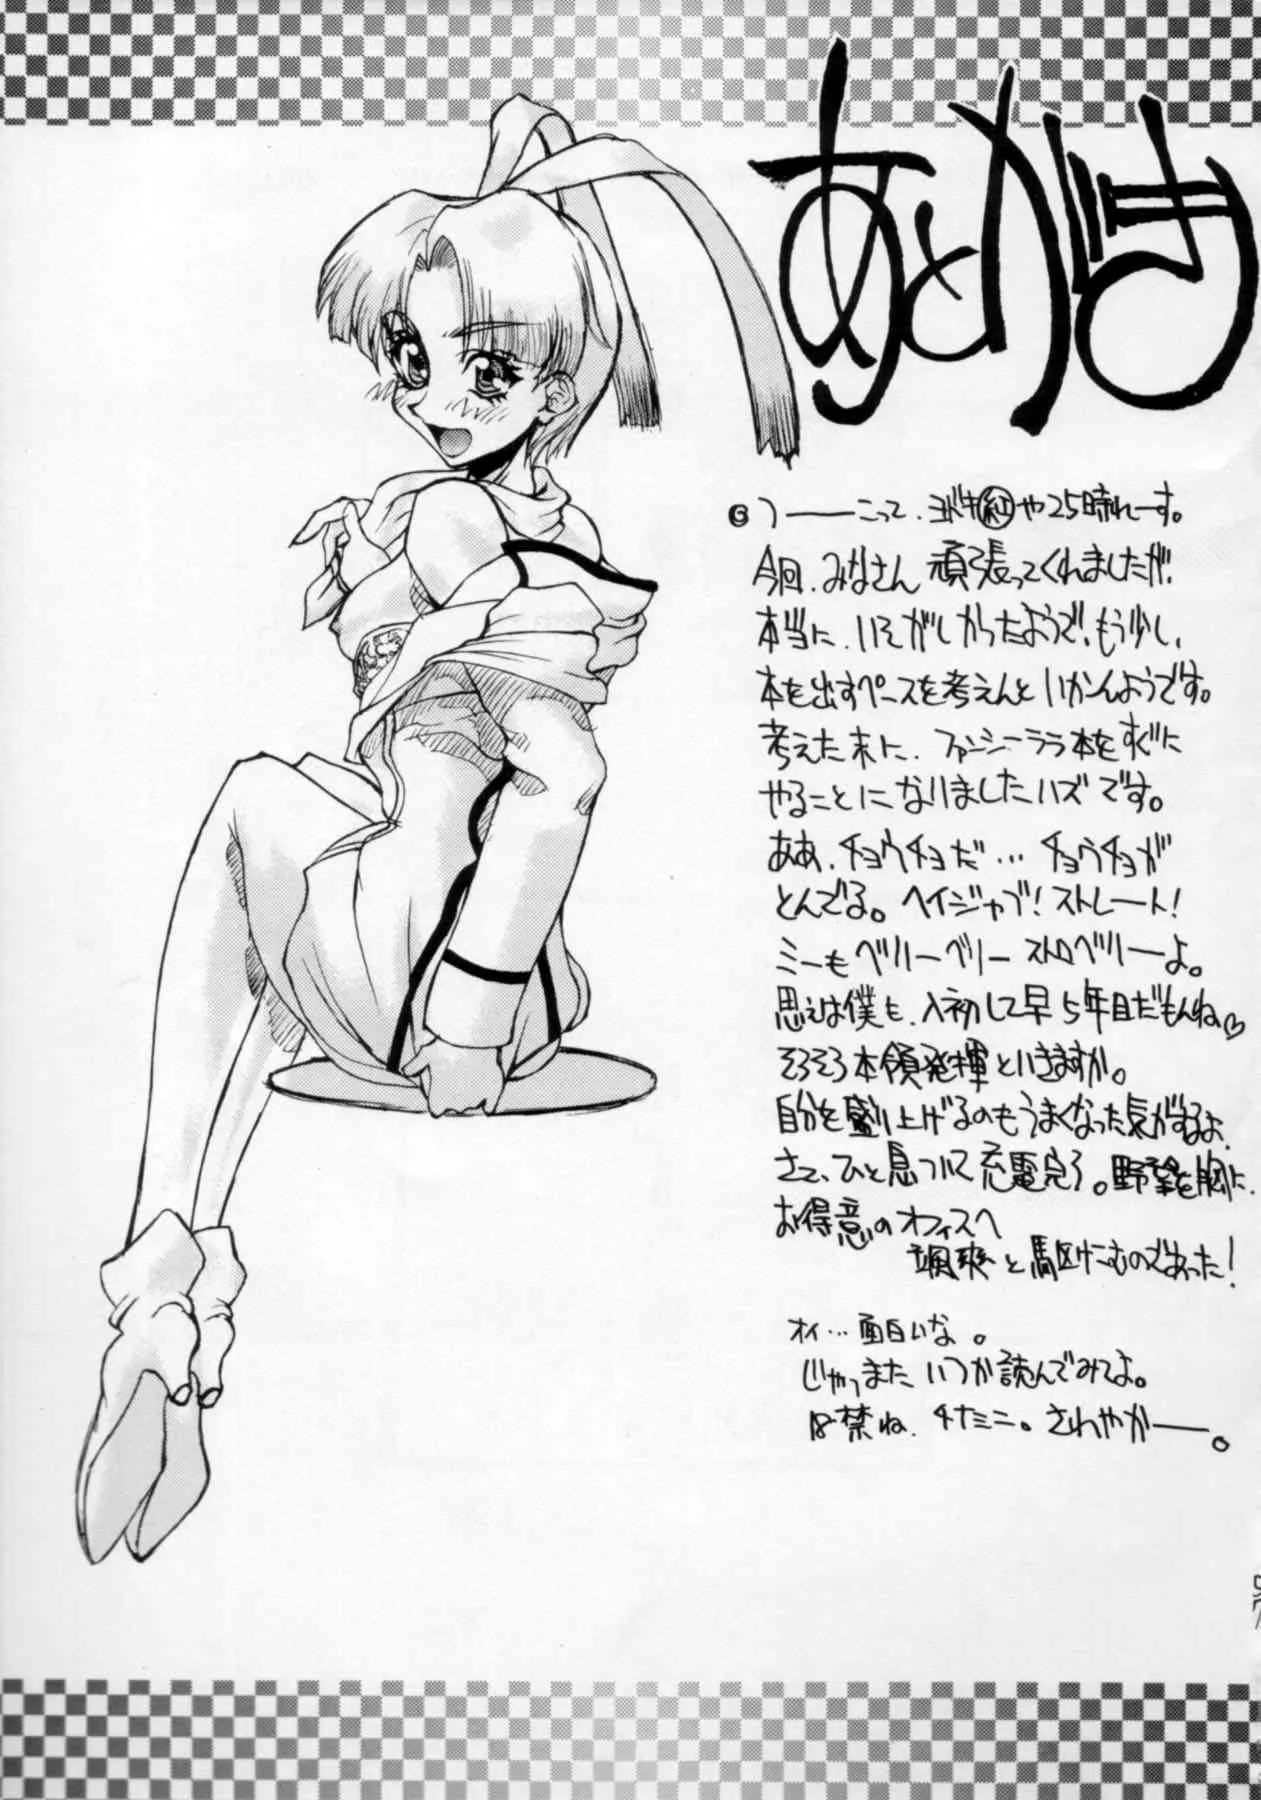 あとがき
つーーこって、ヨドキ㊷や25時れーす。
今回、みなさん 頑張ってくれましたが、
本当に、いそがしかったようで、もう少し、
本を出すペースを考えんといかんようです。
考えた末に、ファンシーララ本をすぐに
やることになりましたハズです。
ああ、チョウチョだ… チョウチョが
とんでる。ヘイジャブ!ストレート!
ミーもベリーベリーストロベリーよ。
思えば僕も、入初して早5年目だもんね♡
そろそろ本領発揮といきますか。
自分を盛り上げるのもうまくなった気がするよ、
さて、ひと息ついて充電完了。野望を胸に、
お得意のオフィスへ
颯爽と駆けこむのであった!
オイ…面白いな。
じゃっまた、いつか読んでみてよ。
18禁ね、チナミニ。さわやかーー。